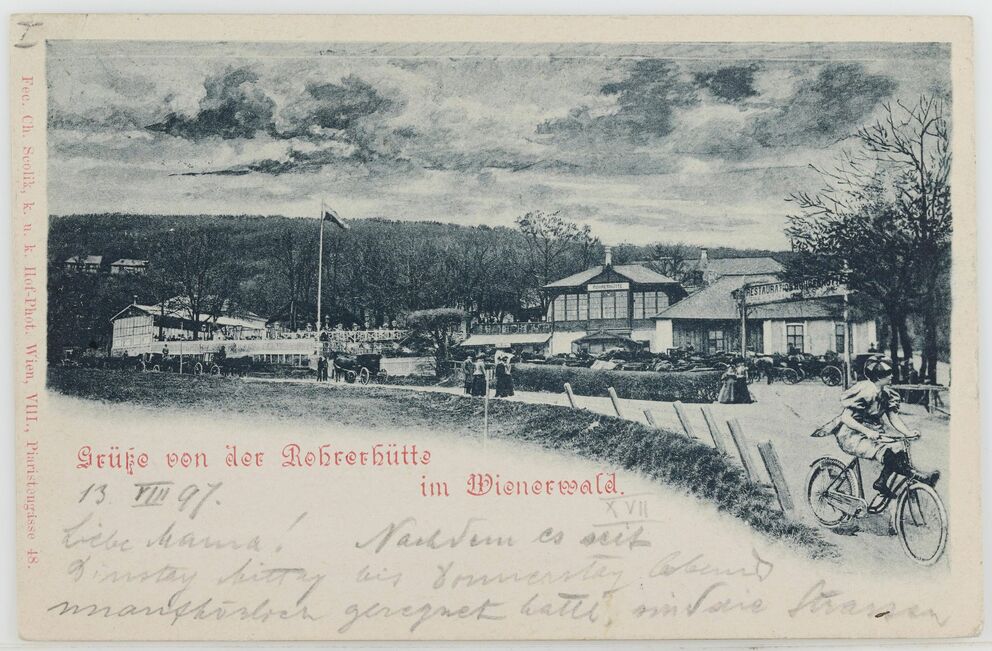 ROHRERHÜTTE
RESTAURATION ROHRERHÜTTE
Fec. Ch. Scolik, k. u. k. Hof-Phot. Wien, VIII., Piaristengasse 48.
Grüße von der Rohrerhütte
im Wienerwald.
13 VIII 97.
XVII
Liebe Mama! Nachdem es seit
Dinstag Mittag bis Donnerstag Abend
unaufhörlich geregnet hatte, sind die Strassen